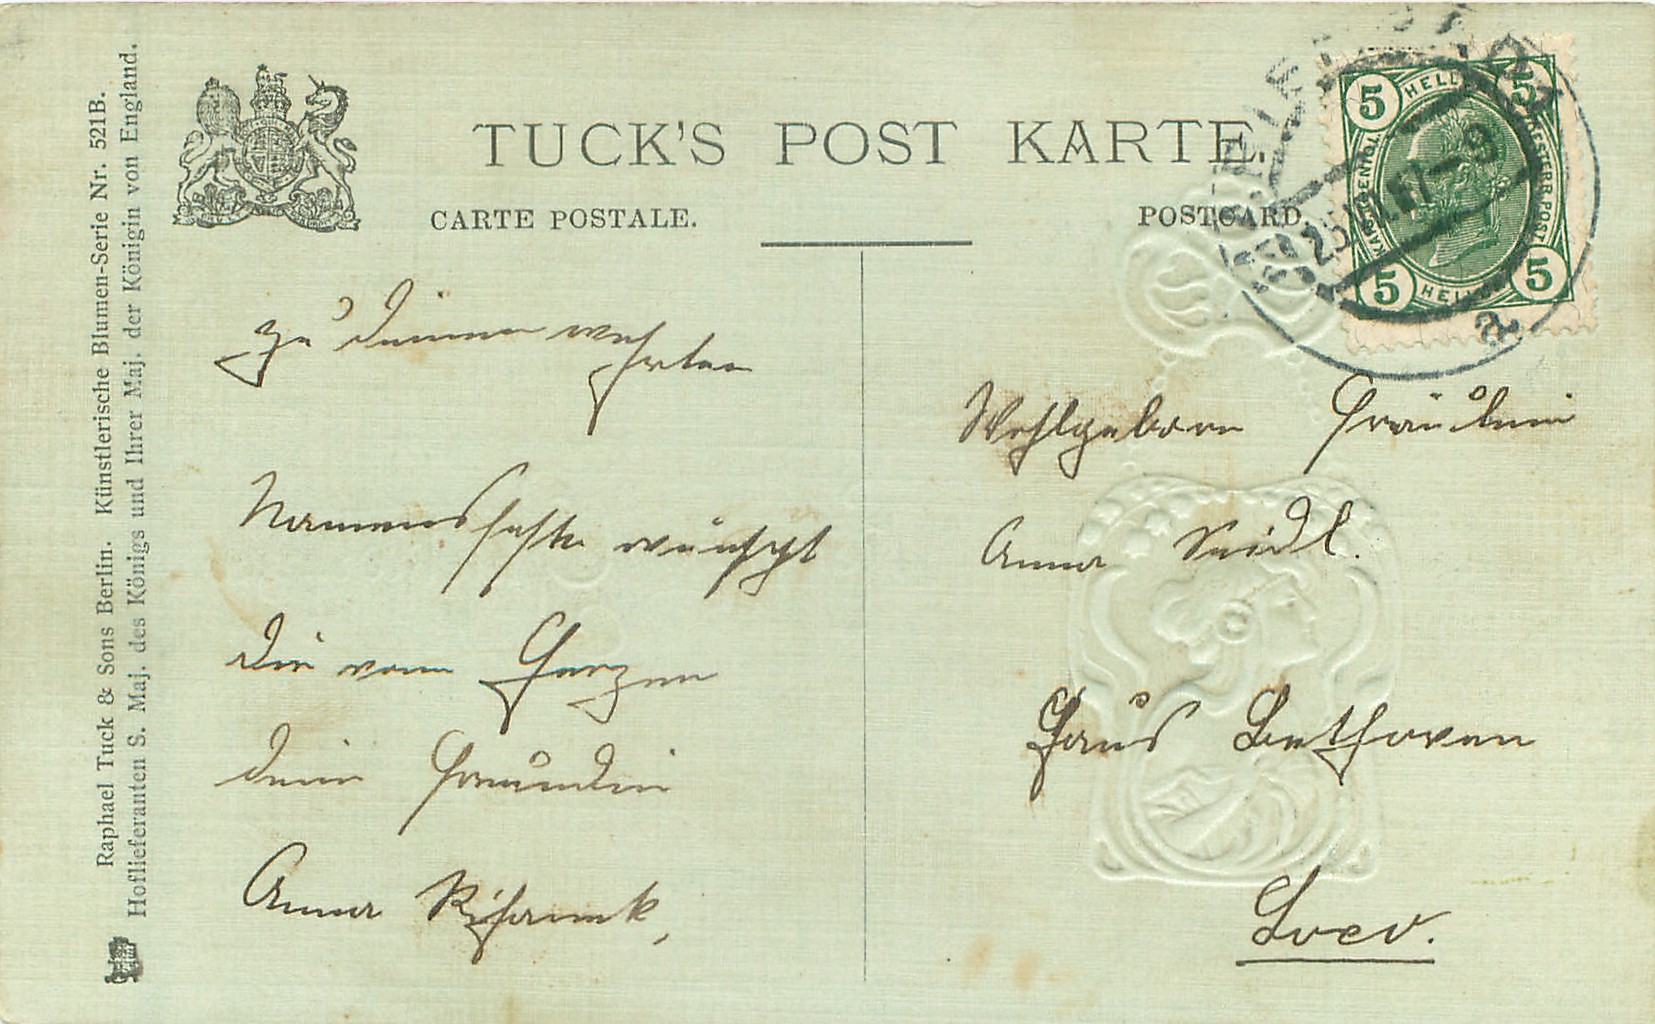 Raphael Tuck & Sons Berlin. Künstlerische Blumen-Serie Nr. 521B.
Hoflieferanten S. Maj. des Königs und Ihrer Maj. der Königin von England.
TUCK'S POST KARTE.
CARTE POSTALE.
POSTCARD.
5 HELLER 5
5 HELLER 5
25
9
a
Zu deinem werthen
Namensfeste wünscht
dir vom Herzen
dein Freundin
Anna
Wohlgeboren Fräulein
Anna Seidl.
Haus Bethoven